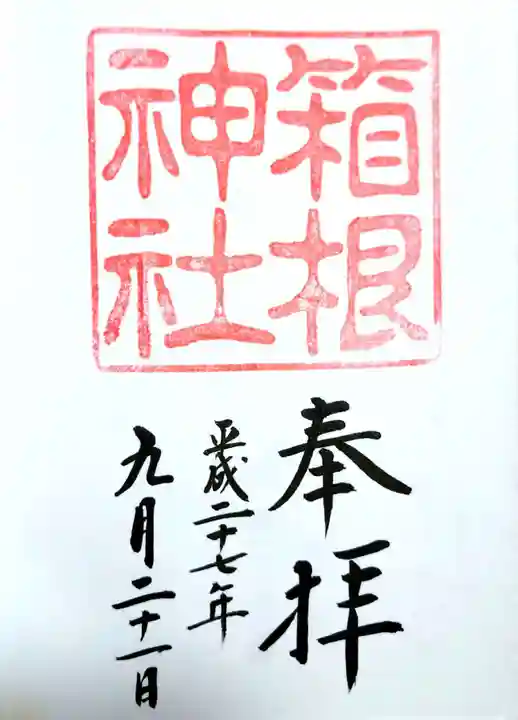 箱根
神社
奉拝
平成二十七年
九月二十一日